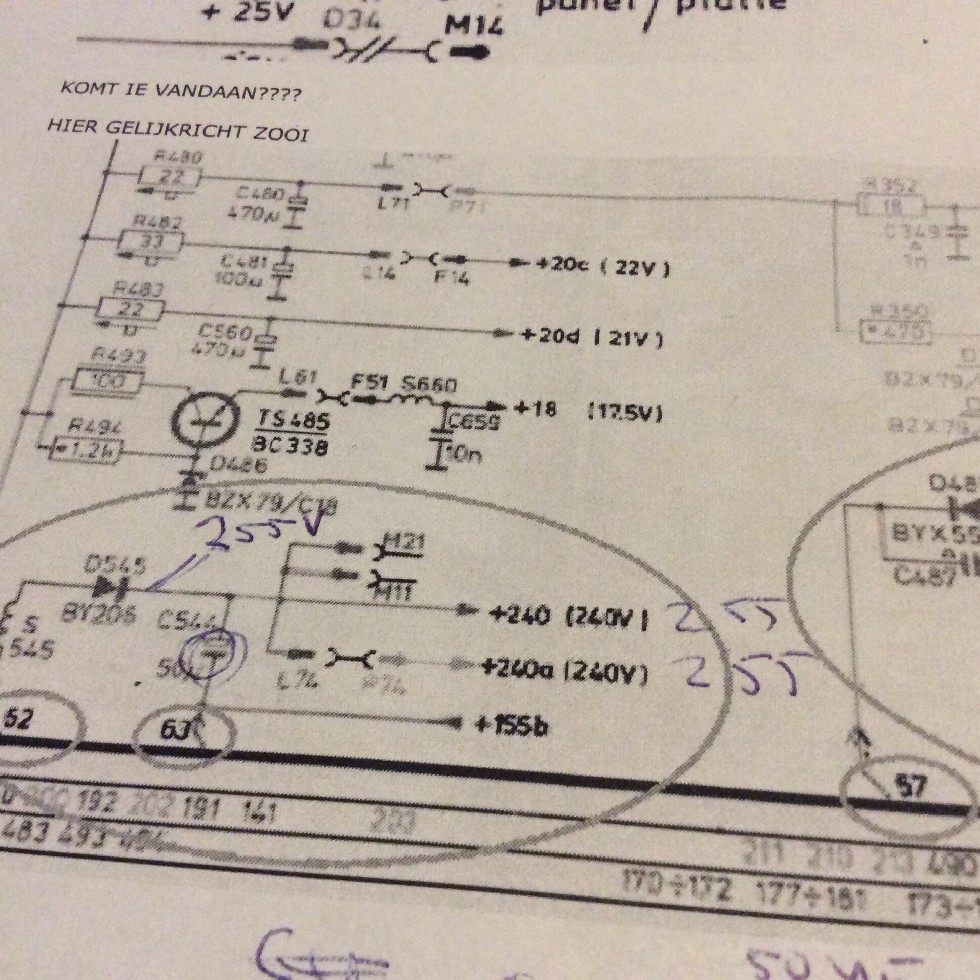 + 25V D34 M14 panel / platte
KOMT IE VANDAAN????
HIER GELIJKRICHT ZOOI
R480
22
C480
470µ
L71
P71
R352
18
C349
1n
R482
33
C481
100µ
F14
+20c ( 22V )
R483
22
C560
470µ
+20d ( 21V )
R350
470
R493
100
L61 F51 S660
TS485
BC338
C659
10n
+18 (17.5V)
BZX79/
BZX79
R494
1.2k
D486
BZX79/C18
255V
D545
BY206
C544
50µ
S
545
M21
M11
+240 (240V) 255
L74 P74
+240a (240V) 255
+155b
D487
BYX55
C487
62
63
57
200 192 202 191 141 203
483 493 494
211 210 213 490
170÷172 177÷181 173÷
50